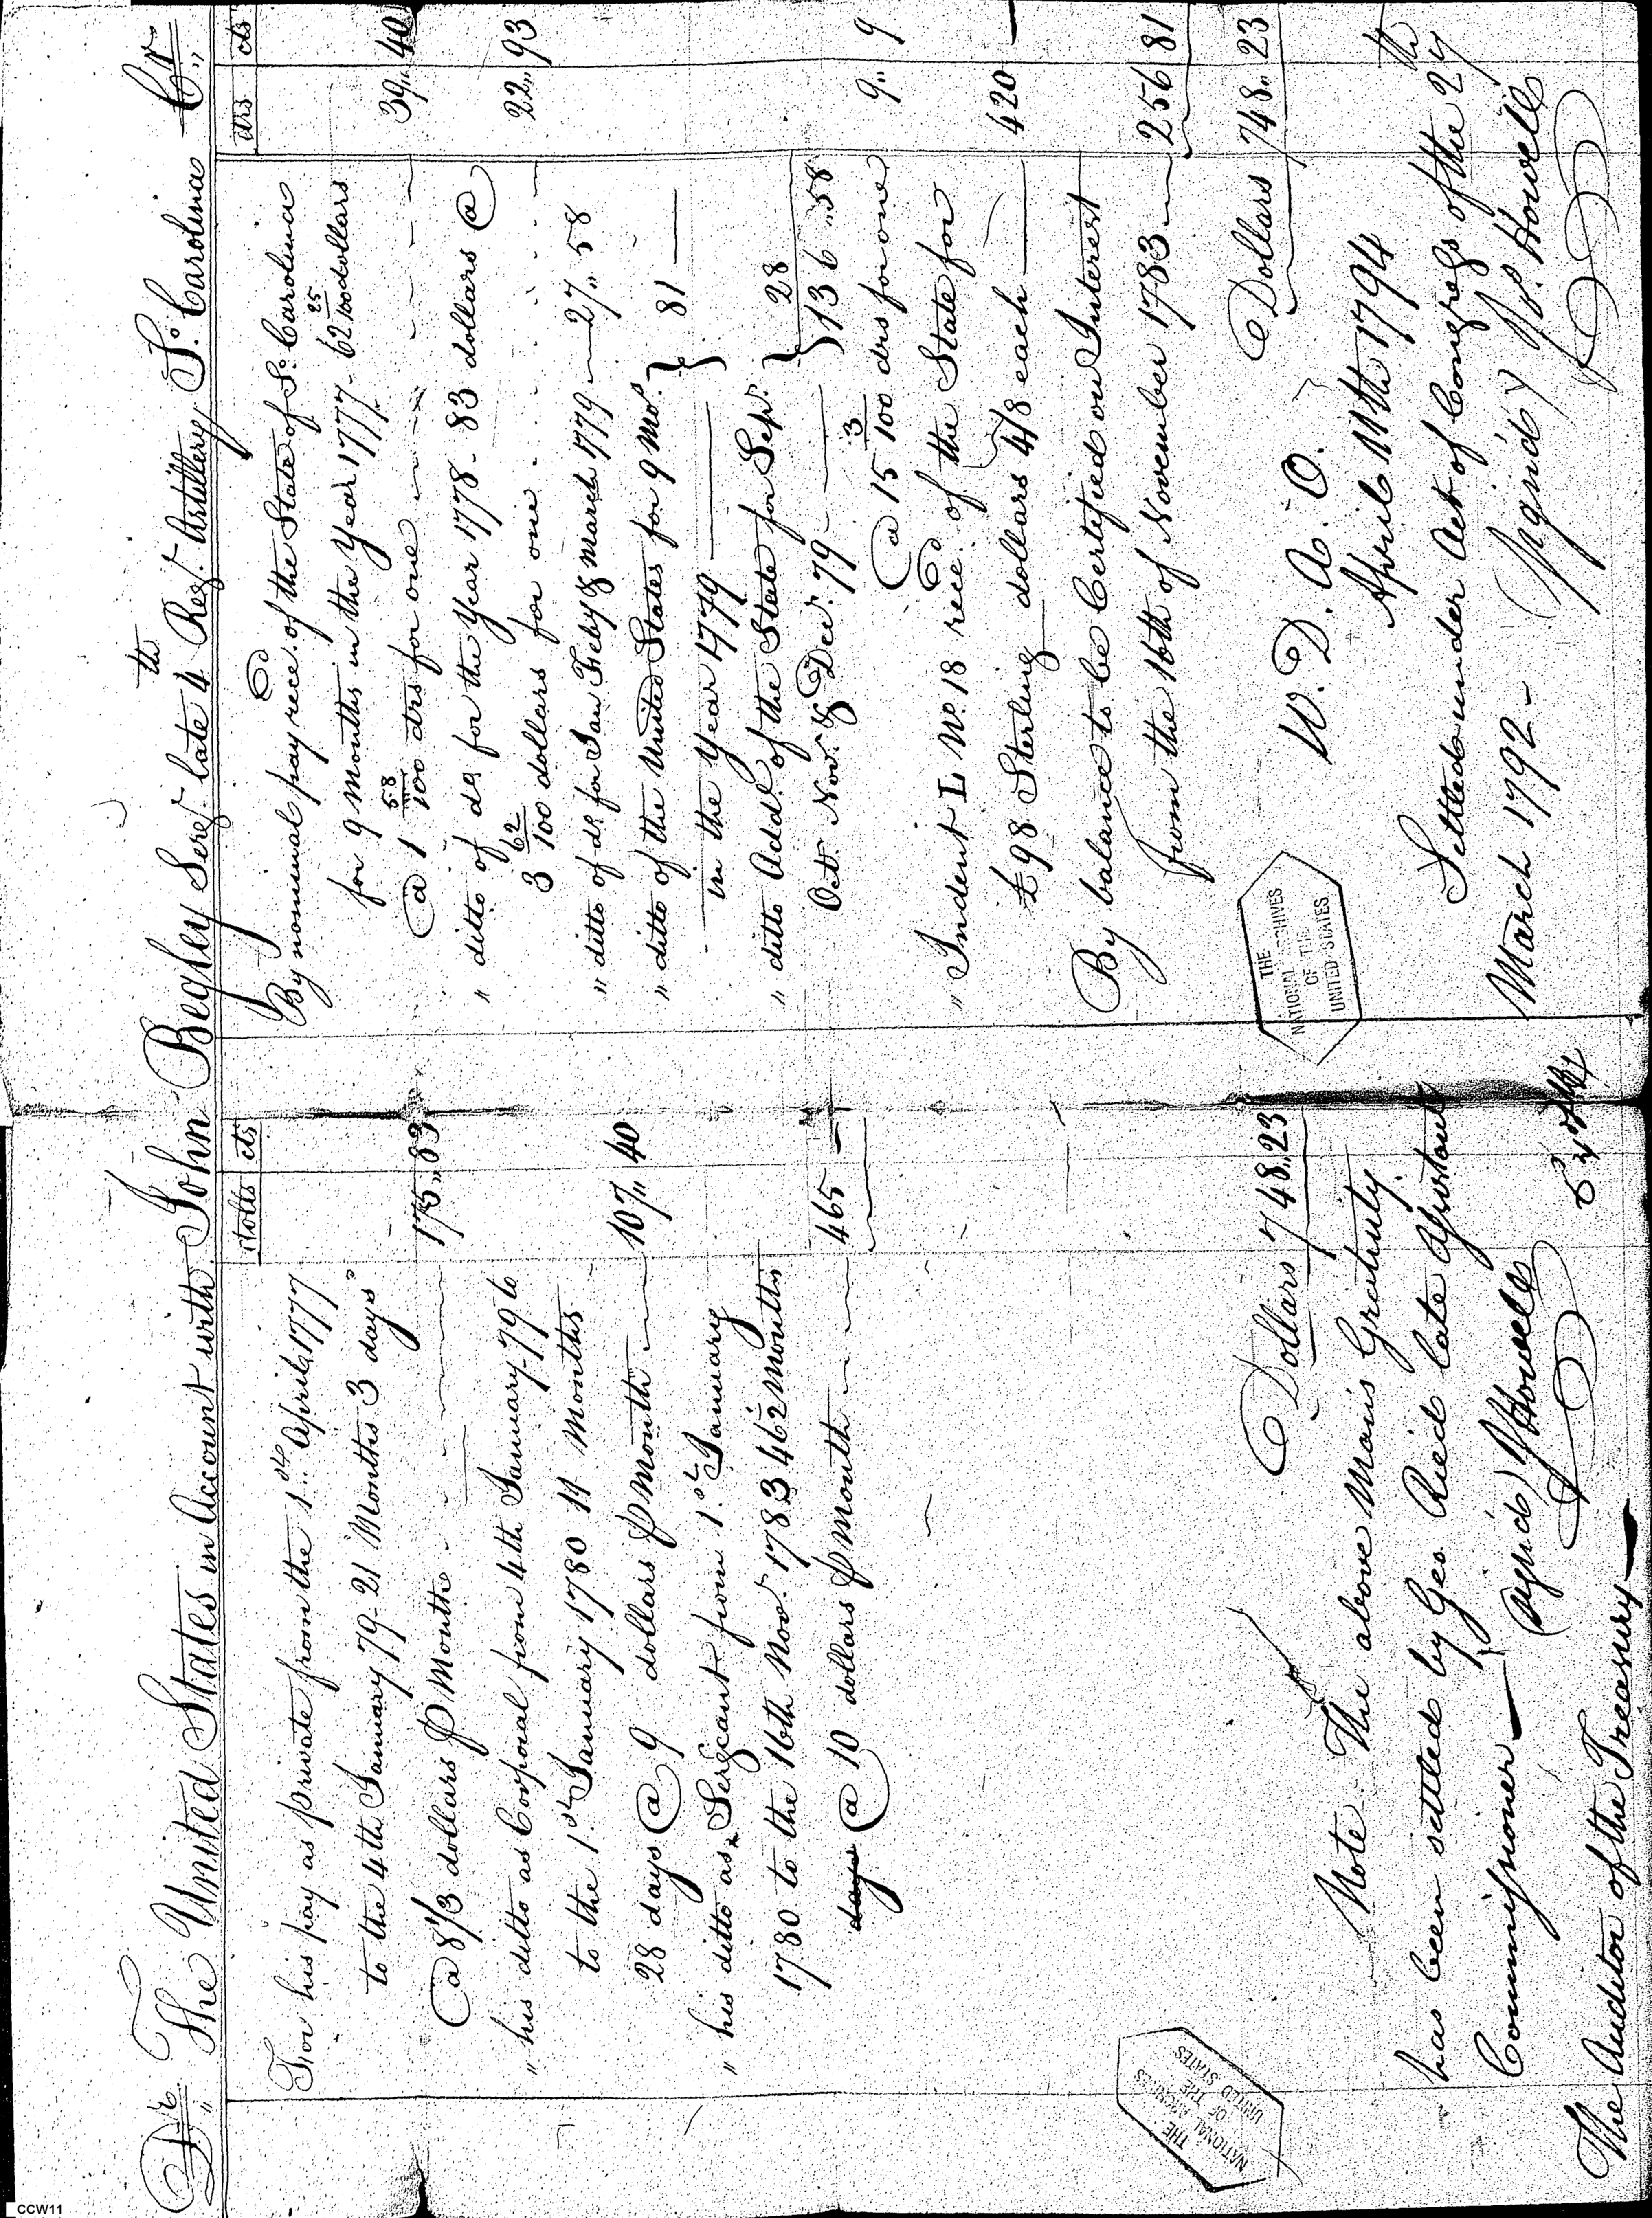 Dr. The United States in Account with John Begley Sergt. late 4th Regt. Artillery So. Carolina Cr.
dolls cts
For his pay as private from the 1st April 1777
to the 4th January 79 - 21 Months 3 days
@ 8 1/3 dollars ⅌ Month 175 83
" his ditto as Corporal from 4th January 79 to
to the 1st January 1780 11 Months
28 days @ 9 dollars ⅌ Month 107 40
" his ditto as Sergeant from 1st January
1780 to the 16th Novr. 1783 46 1/2 Months
days @ 10 dollars ⅌ Month 465 —
Dollars 748.23
Note. The above Mans Gratuity
has been settled by Geo. Reid late Assistant
Commissioner —
(Signed) J Howell
The Auditor of the Treasury —
drs cts
By nominal pay reced. of the State of So. Carolina
for 9 Months in the Year 1777 - 62 25/100 dollars
@ 1 58/100 drs for one 39 40
" ditto of do. for the Year 1778 - 83 dollars @
3 62/100 dollars for one 22 93
" ditto of do. for Jan Feby & March 1779 — 27 58
" ditto of the United States for 9 Mo. } 81 —
in the Year 1779
" ditto Addl. of the State for Sepr. } 28
Oct. Nov. & Decr. 79 — } 136 58
@ 15 3/100 drs for one 9 9
" Indent L No. 18 reced. of the State for
£98 Sterling dollars 4/8 each — 420 —
By balance to be Certified on Interest
from the 16th of November 1783 — 256 81
Dollars 748 23
W. D. A. O.
April 11th 1794
Settled under Act of Congress of the 27th
March 1792 - (Signed) Jo. Howell
THE
NATIONAL ARCHIVES
OF THE
UNITED STATES
THE
NATIONAL ARCHIVES
OF THE
UNITED STATES
CCW11